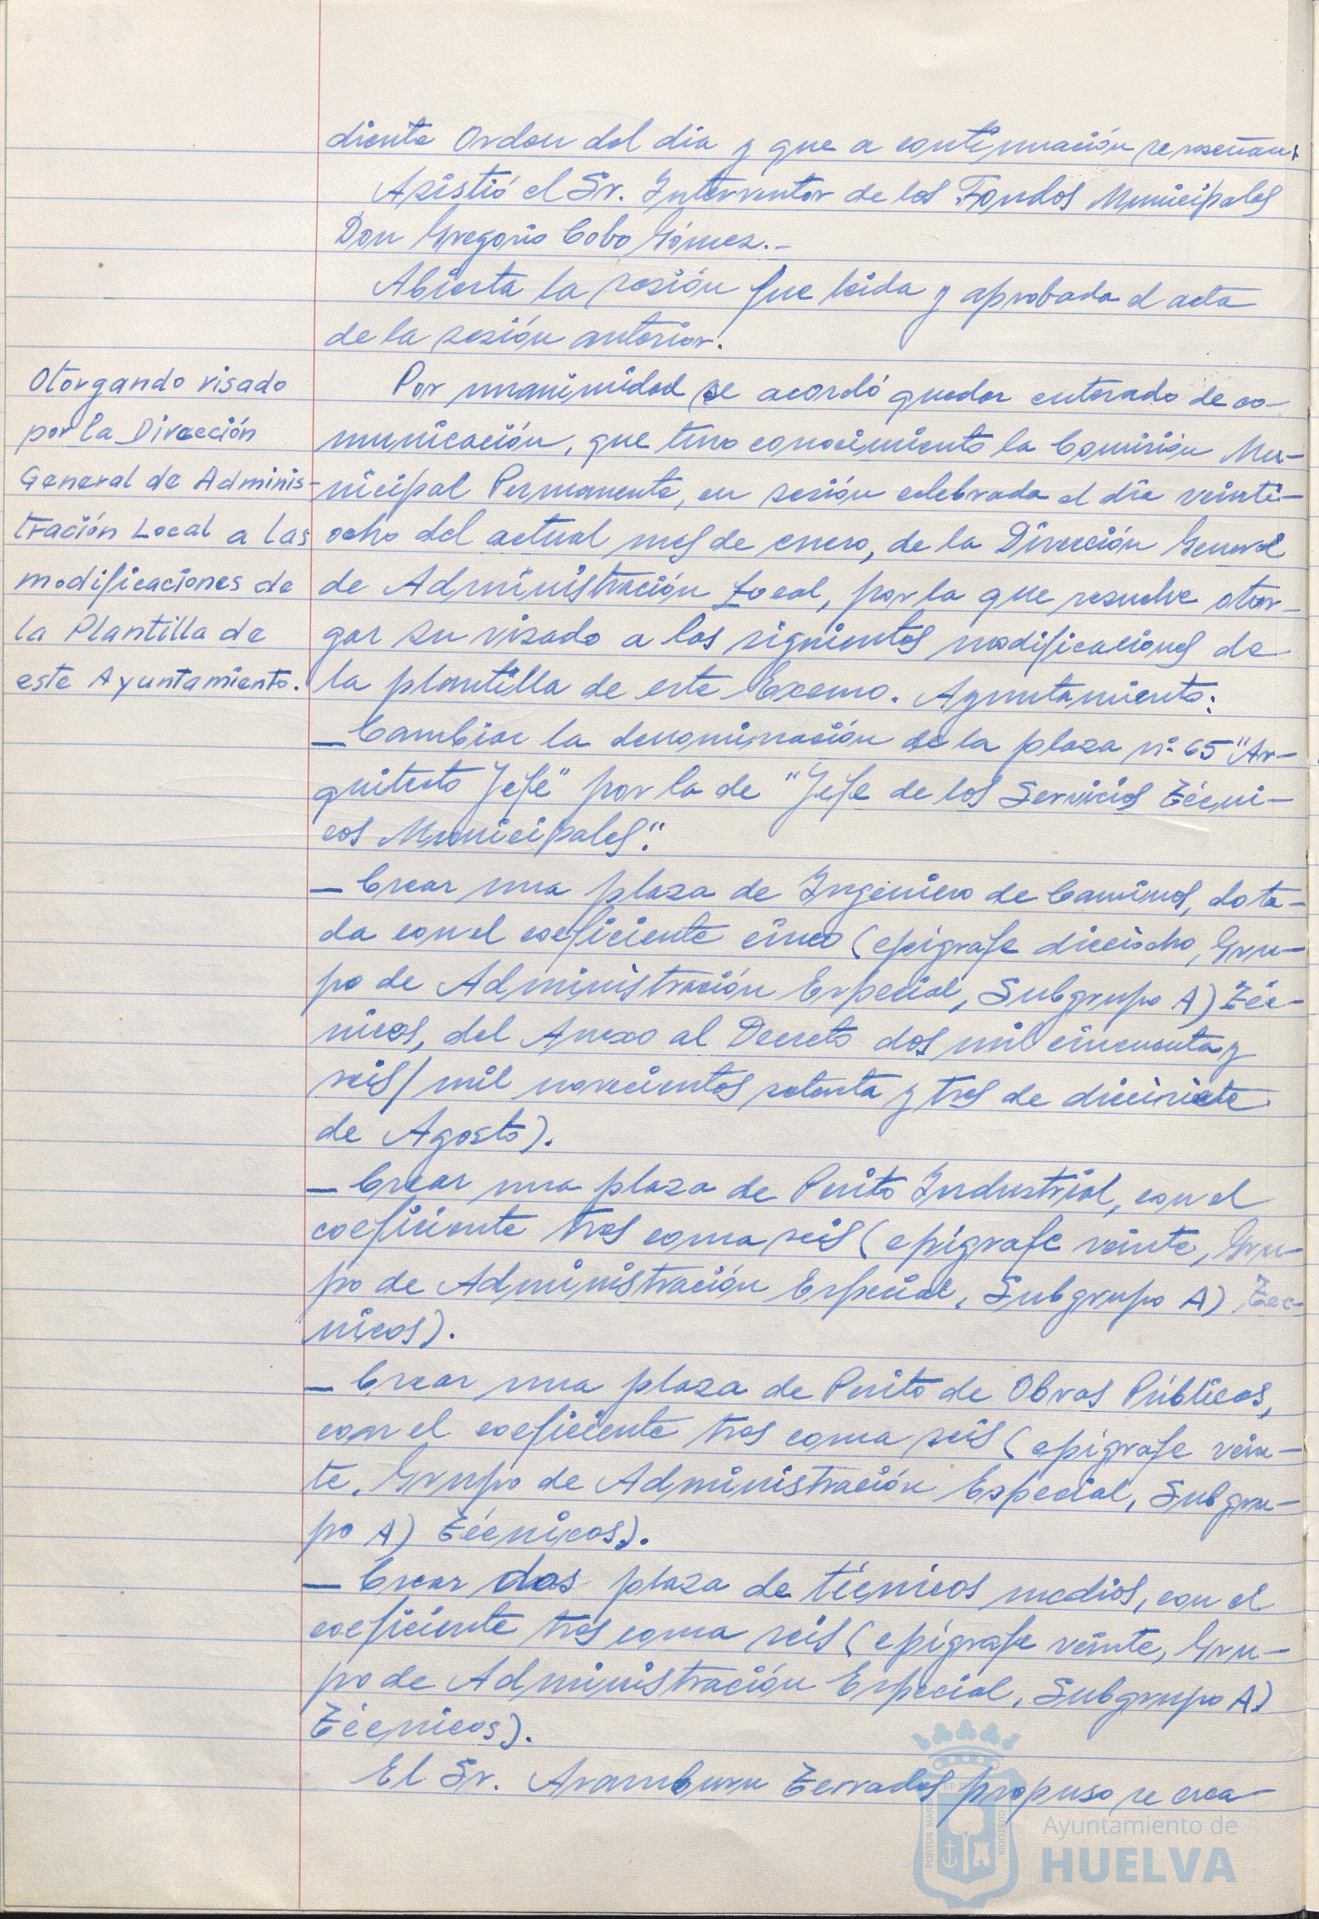 diente Orden del dia y que a continuación se reseñan:
Asistió el Sr. Interventor de los Fondos Municipales
Don Gregorio Cobo Gómez.-
Abierta la sesión fue leida y aprobada el acta
de la sesión anterior.
Otorgando visado
por la Dirección
General de Adminis-
tración Local a las
modificaciones de
la Plantilla de
este Ayuntamiento.
Por unanimidad se acordó quedar enterado de co-
municación, que tuvo conocimiento la Comisión Mu-
nicipal Permanente, en sesión celebrada el día veinti-
ocho del actual mes de enero, de la Dirección General
de Administración Local, por la que resuelve otor-
gar su visado a las siguientes modificaciones de
la plantilla de este Excmo. Ayuntamiento:
- Cambiar la denominación de la plaza nº 65 "Ar-
quitecto Jefe" por la de "Jefe de los Servicios Técni-
cos Municipales".
- Crear una plaza de Ingeniero de Caminos, dota-
da con el coeficiente cinco (epígrafe dieciocho, Gru-
po de Administración Especial, Subgrupo A) Téc-
nicos, del Anexo al Decreto dos mil cincuenta y
seis/mil novecientos setenta y tres de diecisiete
de Agosto).
- Crear una plaza de Perito Industrial, con el
coeficiente tres coma seis (epígrafe veinte, Gru-
po de Administración Especial, Subgrupo A) Téc-
nicos).
- Crear una plaza de Perito de Obras Públicas,
con el coeficiente tres coma seis (epigrafe vein-
te, Grupo de Administración Especial, Subgru-
po A) Técnicos).
- Crear dos plaza de técnicos medios, con el
coeficiente tres coma seis (epígrafe veinte, Gru-
po de Administración Especial, Subgrupo A)
Técnicos).
El Sr. Aramburu Terrados propuso se crea-
PORTUS MARIS
CUSTODIA
Ayuntamiento de
HUELVA